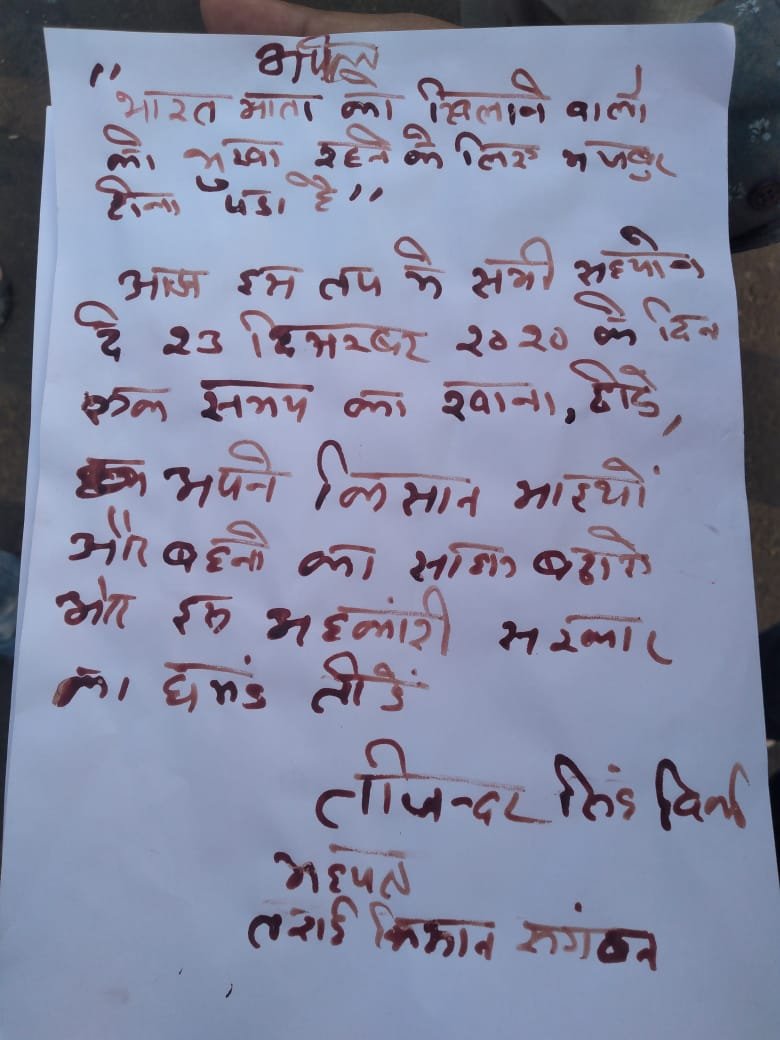 अपिल
" भारत माता को खिलाने वालो
को भुखा रहने के लिए मजबुर
होना पडा है "
आज इस तप मे सभी सहयोग
दे २३ दिसम्बर २०२० के दिन
एक समय का खाना, छोडे,
अपने किसान भाइयों
और बहनो का साहस बढाने
और इस अहंकारी सरकार
का घमंड तोडें
तजिन्दर सिंह विर्क
अध्यक्ष
तराई किसान सगंठन